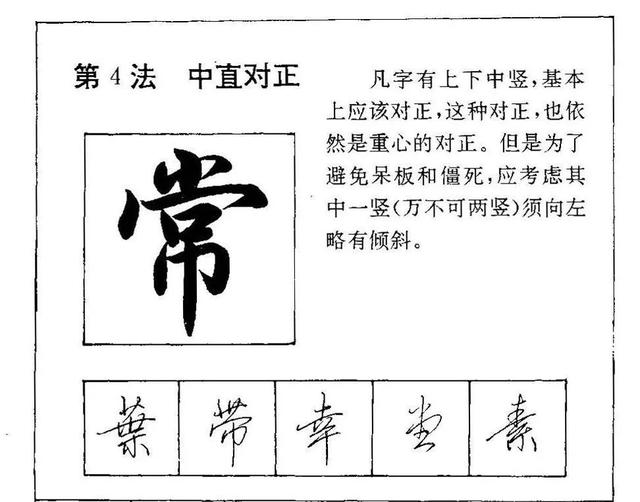 第4法 中直对正
凡字有上下中竖,基本
上应该对正,这种对正,也依
然是重心的对正。但是为了
避免呆板和僵死,应考虑其
中一竖(万不可两竖)须向左
略有倾斜。
常
葉 带 幸 堂 素